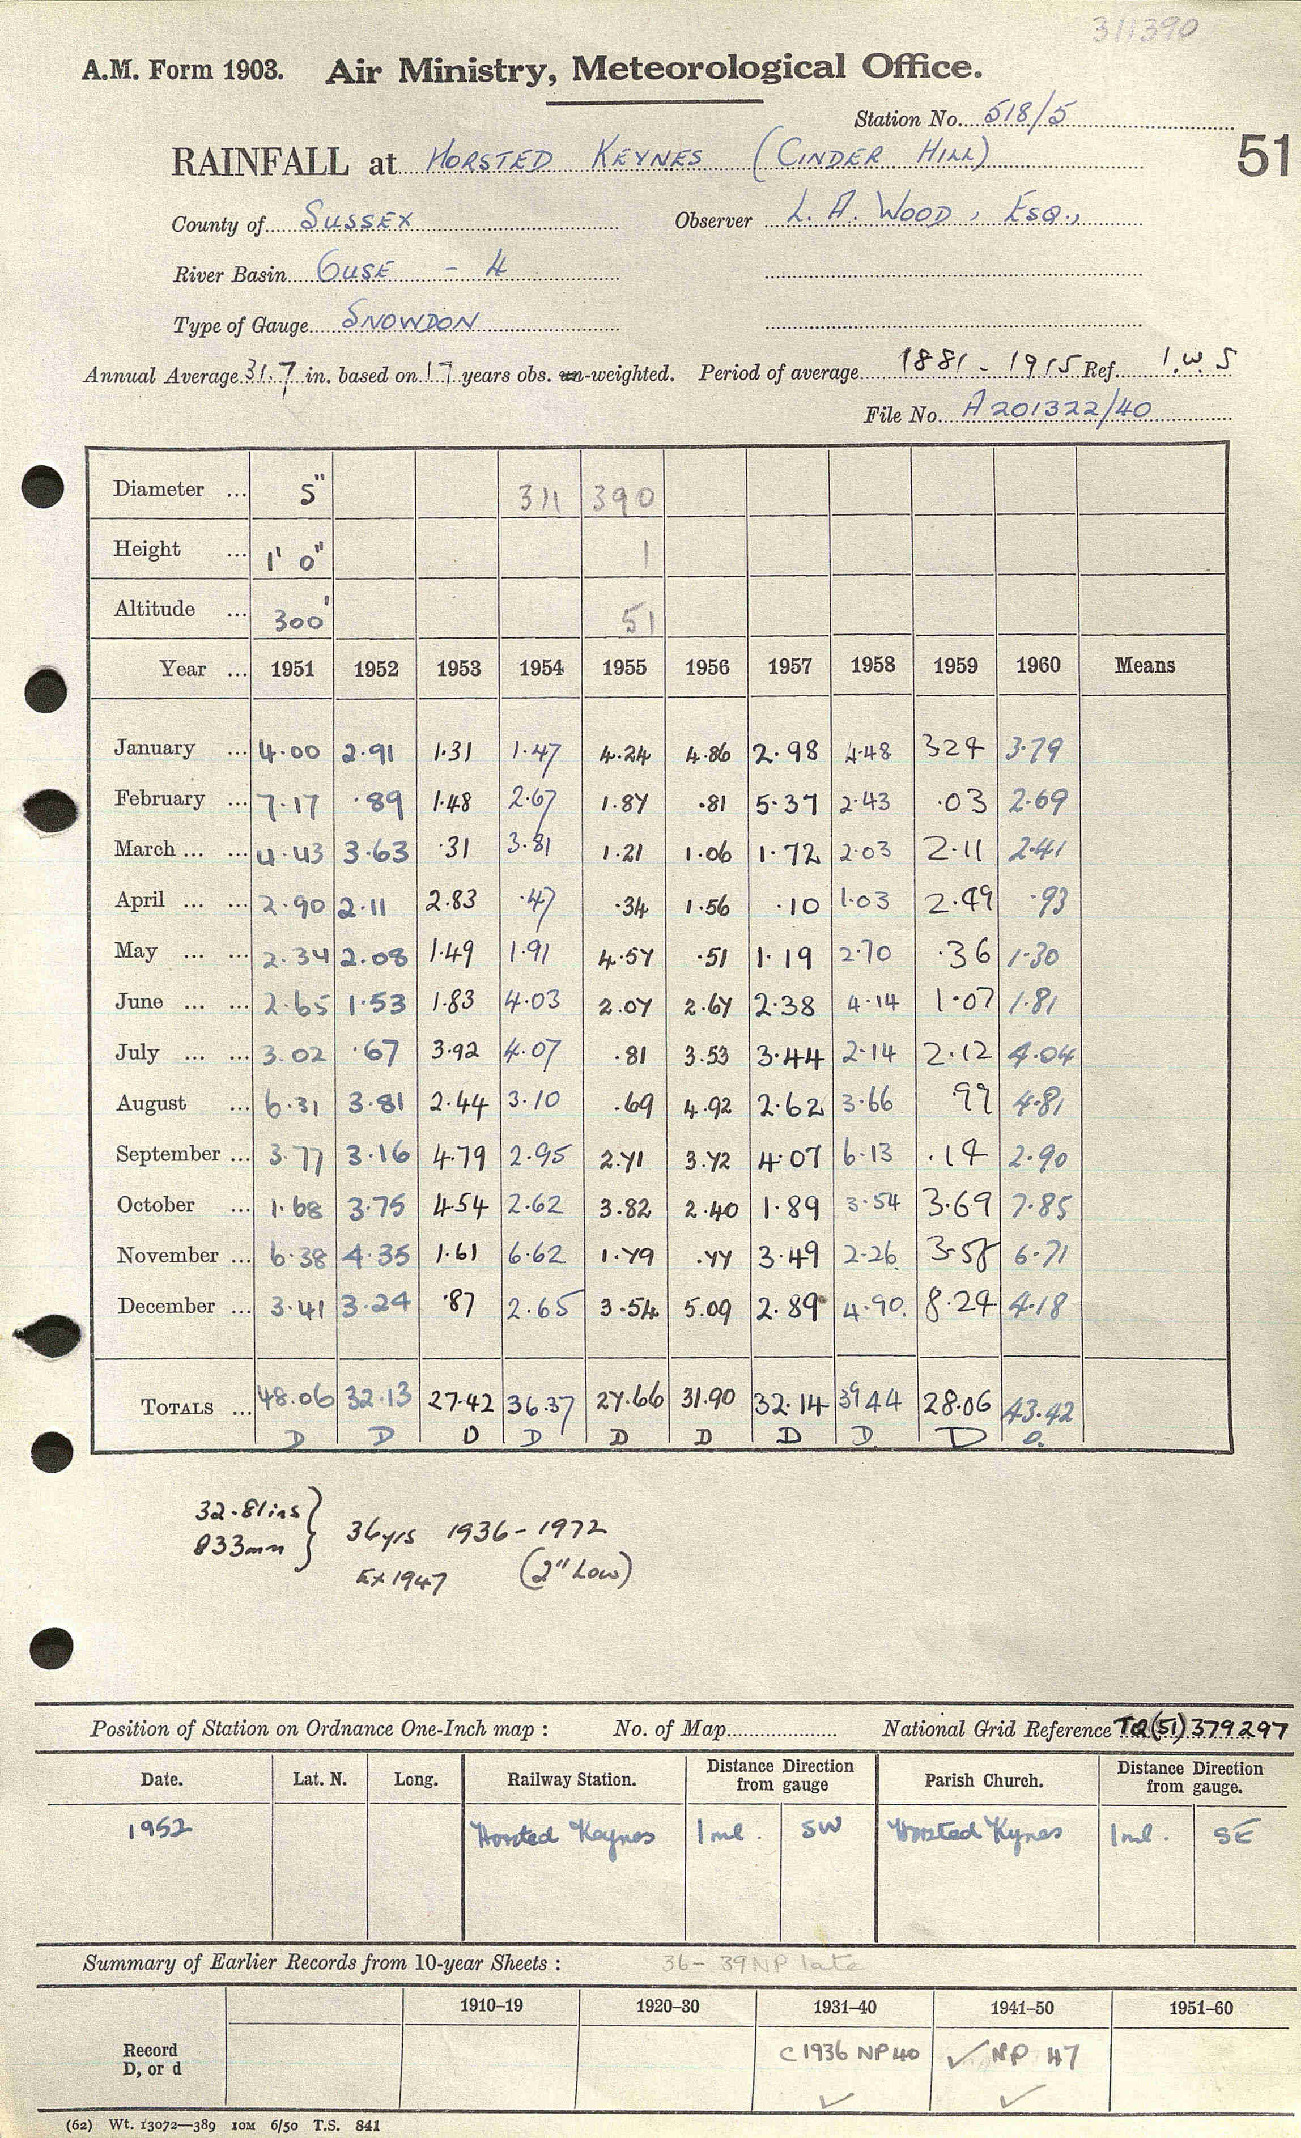 311390
A.M. Form 1903. Air Ministry, Meteorological Office.
Station No. 518/5
51
RAINFALL at HORSTED KEYNES (CINDER HILL)
County of SUSSEX Observer L. A. WOOD, ESQ.,
River Basin OUSE - 4
Type of Gauge SNOWDON
Annual Average 31.7 in. based on 17 years obs. un-weighted. Period of average 1881 - 1915 Ref. I.W.S
File No. A201322/40
Diameter ... 5" 311 390
Height ... 1' 0" 1
Altitude ... 300' 51
Year ... 1951 1952 1953 1954 1955 1956 1957 1958 1959 1960 Means
January ... 4.00 2.91 1.31 1.47 4.24 4.86 2.98 4.48 324 3.79
February ... 7.17 .89 1.48 2.67 1.87 .81 5.37 2.43 .03 2.69
March ... ... 4.43 3.63 .31 3.81 1.21 1.06 1.72 2.03 2.11 2.41
April ... ... 2.90 2.11 2.83 .47 .34 1.56 .10 1.03 2.49 .93
May ... ... 2.34 2.08 1.49 1.91 4.57 .51 1.19 2.70 .36 1.30
June ... ... 2.65 1.53 1.83 4.03 2.07 2.67 2.38 4.14 1.07 1.81
July ... ... 3.02 .67 3.92 4.07 .81 3.53 3.44 2.14 2.12 4.04
August ... 6.31 3.81 2.44 3.10 .69 4.92 2.62 3.66 99 4.81
September ... 3.77 3.16 4.79 2.95 2.71 3.72 4.07 6.13 .14 2.90
October ... 1.68 3.75 4.54 2.62 3.82 2.40 1.89 3.54 3.69 7.85
November ... 6.38 4.35 1.61 6.62 1.79 .77 3.49 2.26 3.58 6.71
December ... 3.41 3.24 .87 2.65 3.54 5.09 2.89 4.90. 8.24 4.18
TOTALS ... 48.06 32.13 27.42 36.37 27.66 31.90 32.14 39 44 28.06 43.42
D D D D D D D D D D.
32.81ins } 36yrs 1936-1972
833mm Ex 1947 (2" Low)
Position of Station on Ordnance One-Inch map : No. of Map National Grid Reference TQ(51)379297
Date. Lat. N. Long. Railway Station. Distance Direction from gauge Parish Church. Distance Direction from gauge.
1952 Horsted Keynes 1 ml. SW Horsted Kynes 1 ml. SE
Summary of Earlier Records from 10-year Sheets : 36-39 NP late
1910–19 1920–30 1931–40 1941–50 1951–60
Record D, or d C 1936 NP 40 ✓ NP 47
✓ ✓
(62) Wt. 13072—389 10M 6/50 T.S. 841